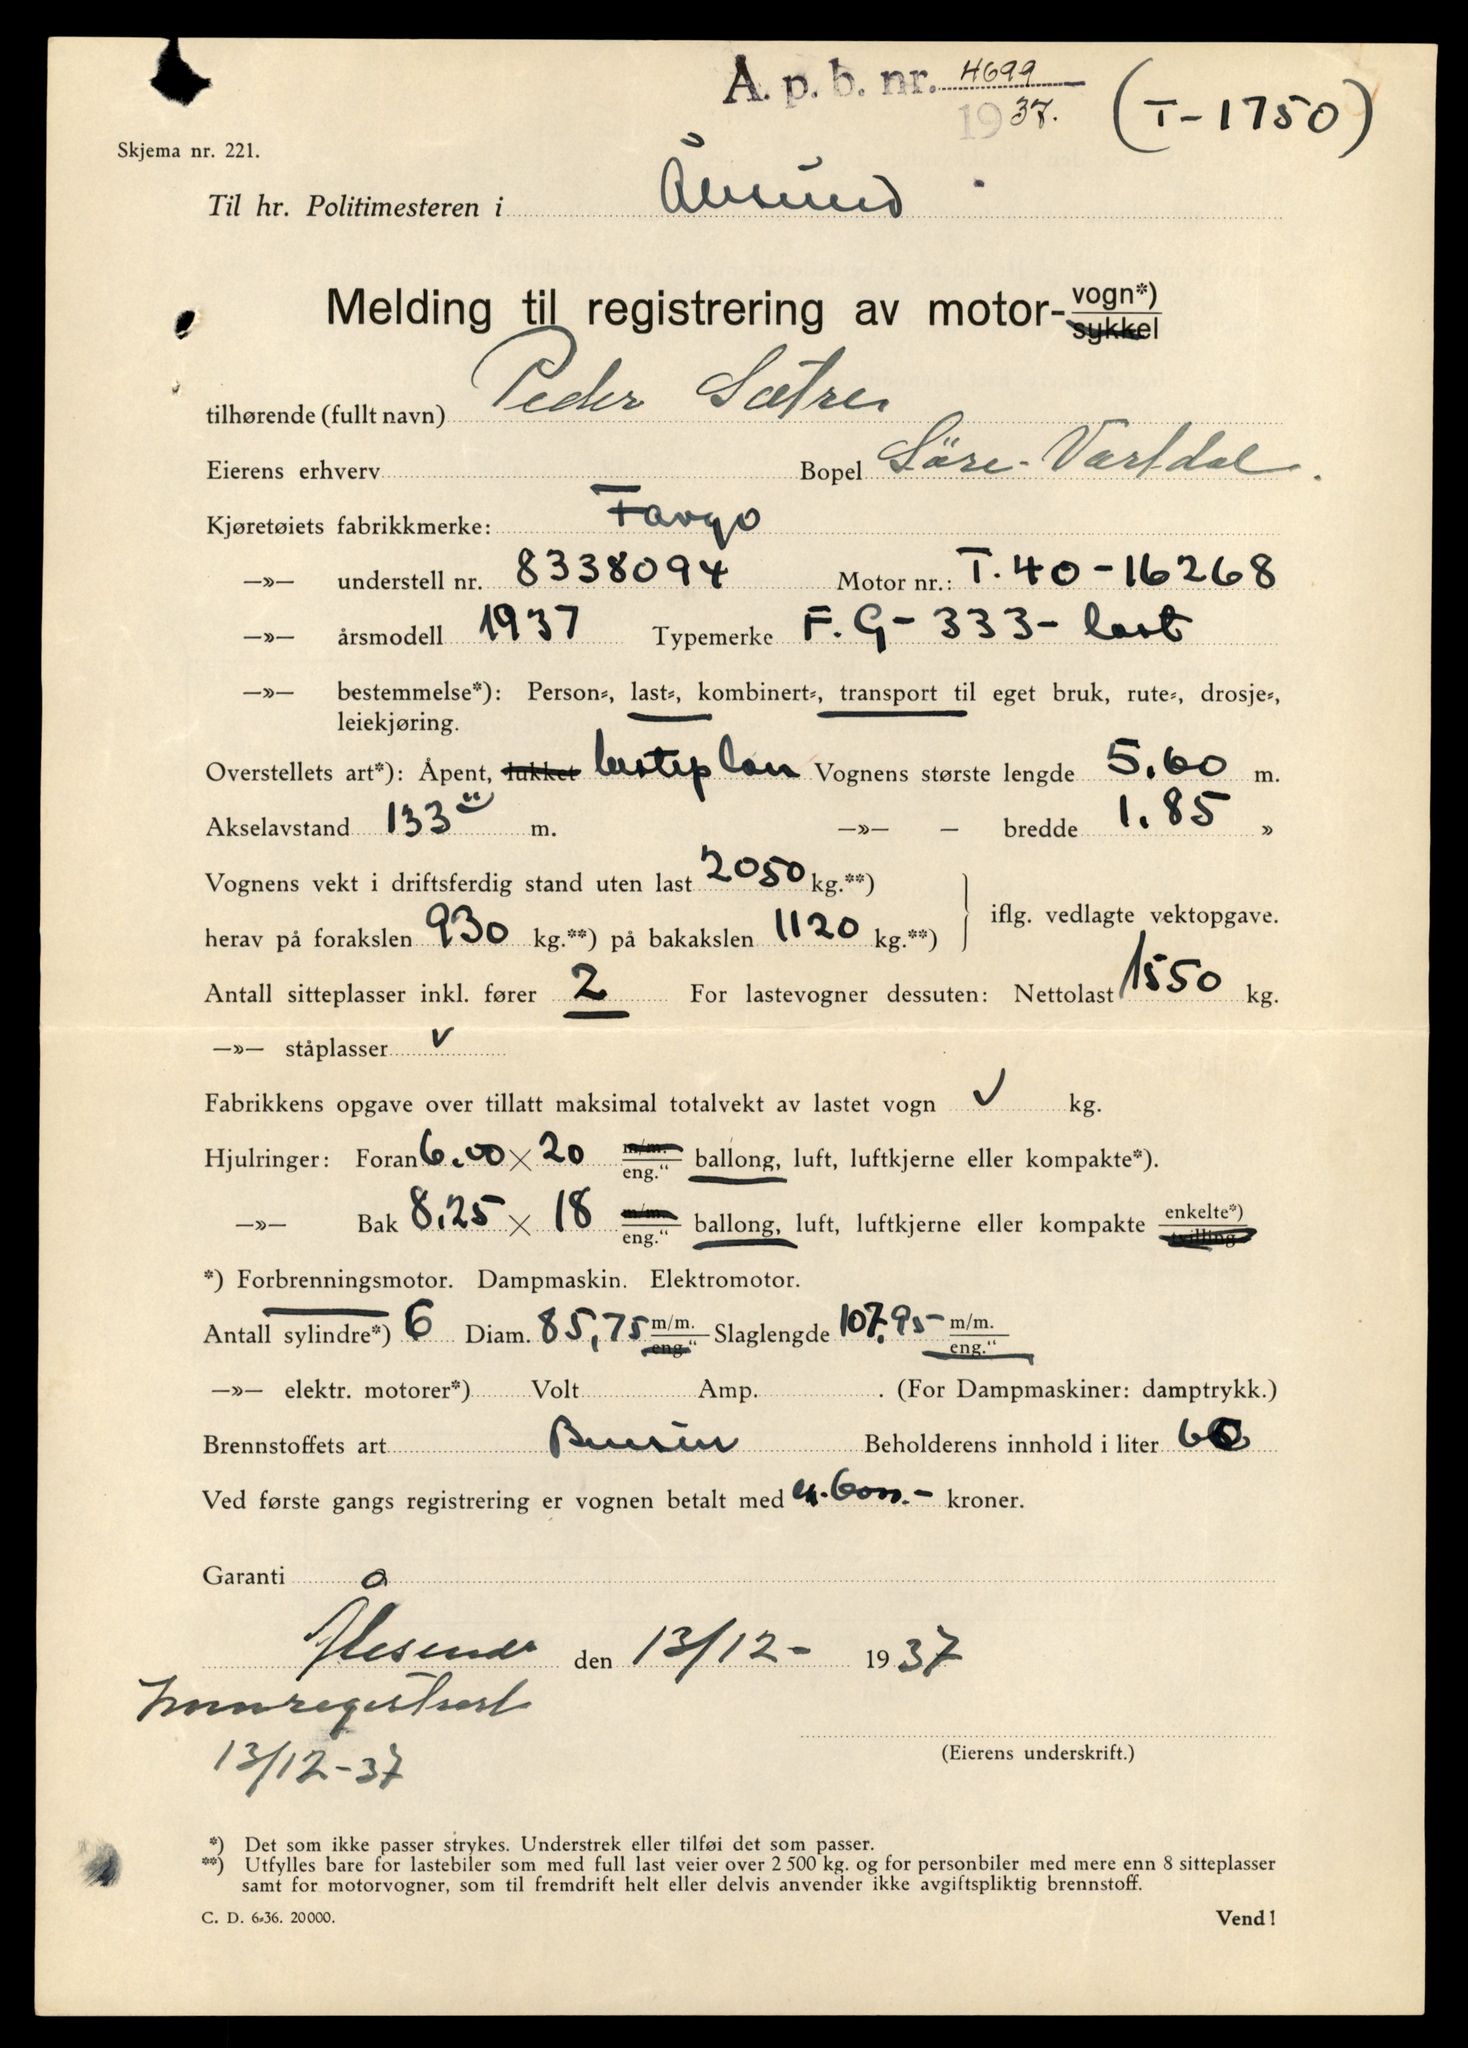 A. p. b. nr. 4699
1937.
(T-1750)
Skjema nr. 221.
Til hr. Politimesteren i Ålesund
Melding til registrering av motor-vogn*)
sykkel
tilhørende (fullt navn) Peder Sætre
Eierens erhverv Bopel Söre-Vartdal.
Kjøretøiets fabrikkmerke: Fargo
—»— understell nr. 8338094 Motor nr.: T.40-16268
—»— årsmodell 1937 Typemerke F.G-333-last
—»— bestemmelse*): Person-, last-, kombinert-, transport til eget bruk, rute-, drosje-,
leiekjøring.
Overstellets art*): Åpent, lukket lasteplan Vognens største lengde 5.60 m.
Akselavstand 133" m. —»— – bredde 1.85 »
Vognens vekt i driftsferdig stand uten last 2050 kg.**)
herav på forakslen 930 kg.**) på bakakslen 1120 kg.**) iflg. vedlagte vektopgave.
Antall sitteplasser inkl. fører 2 For lastevogner dessuten: Nettolast 1550 kg.
—»— ståplasser v
Fabrikkens opgave over tillatt maksimal totalvekt av lastet vogn v kg.
Hjulringer: Foran 6.00 × 20 m/m. eng." ballong, luft, luftkjerne eller kompakte*).
—»— Bak 8.25 × 18 m/m. eng." ballong, luft, luftkjerne eller kompakte enkelte*) tvilling
*) Forbrenningsmotor. Dampmaskin. Elektromotor.
Antall sylindre*) 6 Diam. 85,75 m/m. eng." Slaglengde 107,95 m/m. eng."
—»— elektr. motorer*) Volt Amp. . (For Dampmaskiner: damptrykk.)
Brennstoffets art Bensin Beholderens innhold i liter 60
Ved første gangs registrering er vognen betalt med kroner.
Garanti
Ålesund den 13/12- 1937
Innregistrert
13/12-37
(Eierens underskrift.)
*) Det som ikke passer strykes. Understrek eller tilføi det som passer.
**) Utfylles bare for lastebiler som med full last veier over 2 500 kg. og for personbiler med mere enn 8 sitteplasser
samt for motorvogner, som til fremdrift helt eller delvis anvender ikke avgiftspliktig brennstoff.
C. D. 6-36. 20000.
Vend!